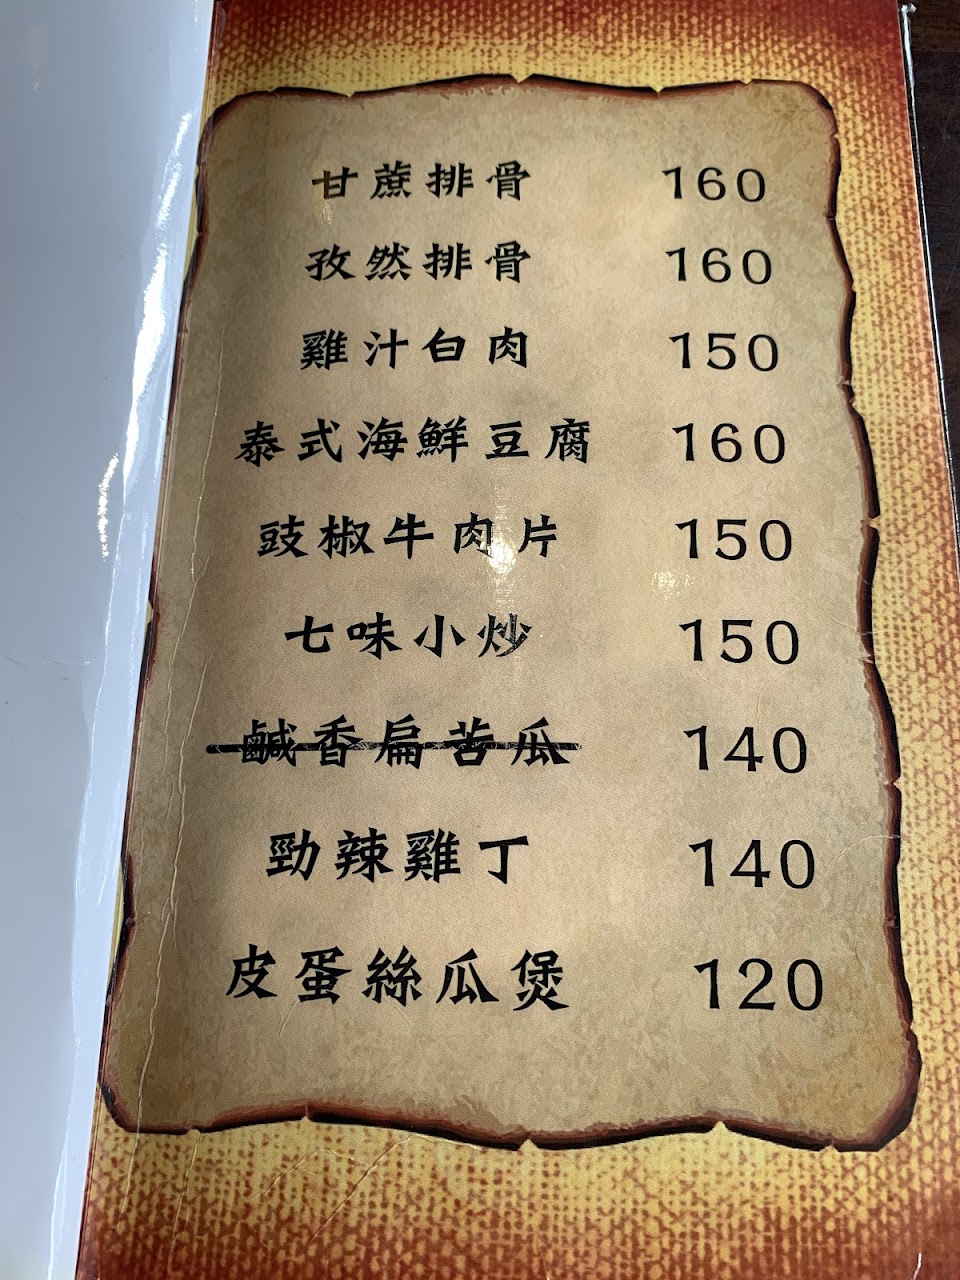 甘蔗排骨 160
孜然排骨 160
雞汁白肉 150
泰式海鮮豆腐 160
豉椒牛肉片 150
七味小炒 150
鹹香扁苦瓜 140
勁辣雞丁 140
皮蛋絲瓜煲 120